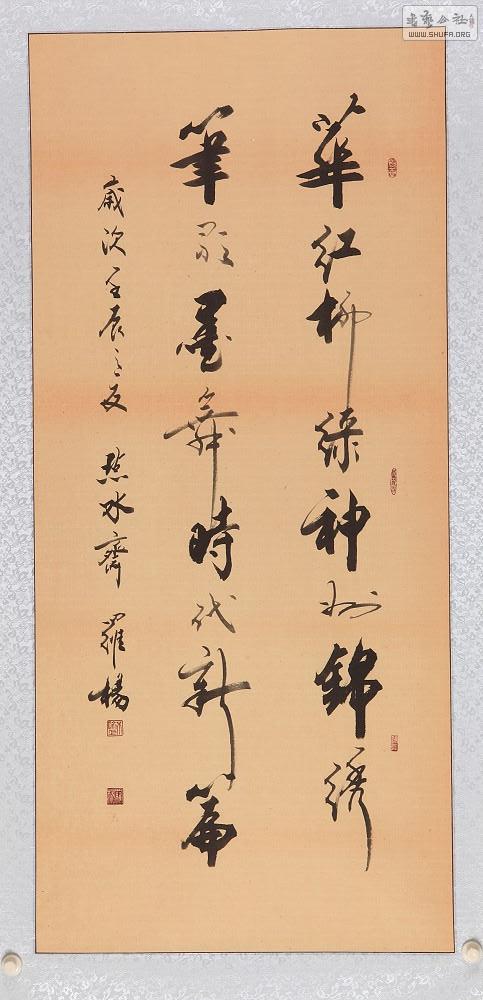 書藝公社
WWW.SHUFA.ORG
華紅柳綠神州錦绣
筆歌墨舞時代新篇
歲次壬辰之夏 水齋 羅